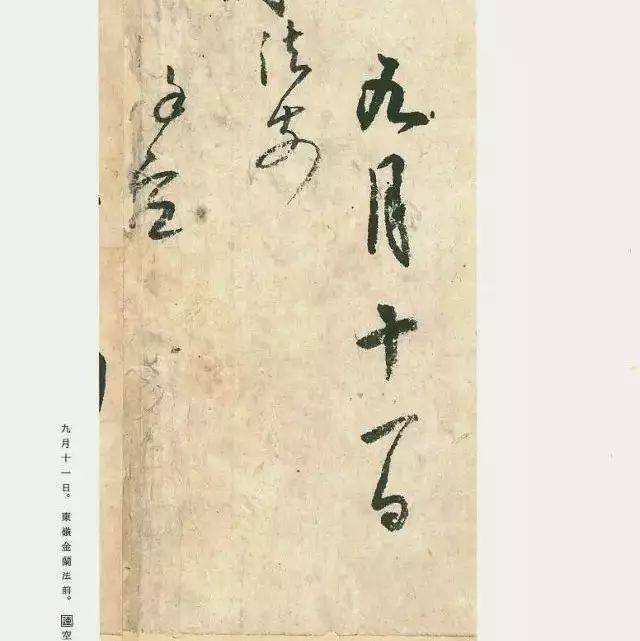 九月十一日
法前
空
九月十一日。東嶺金蘭法前。謹空